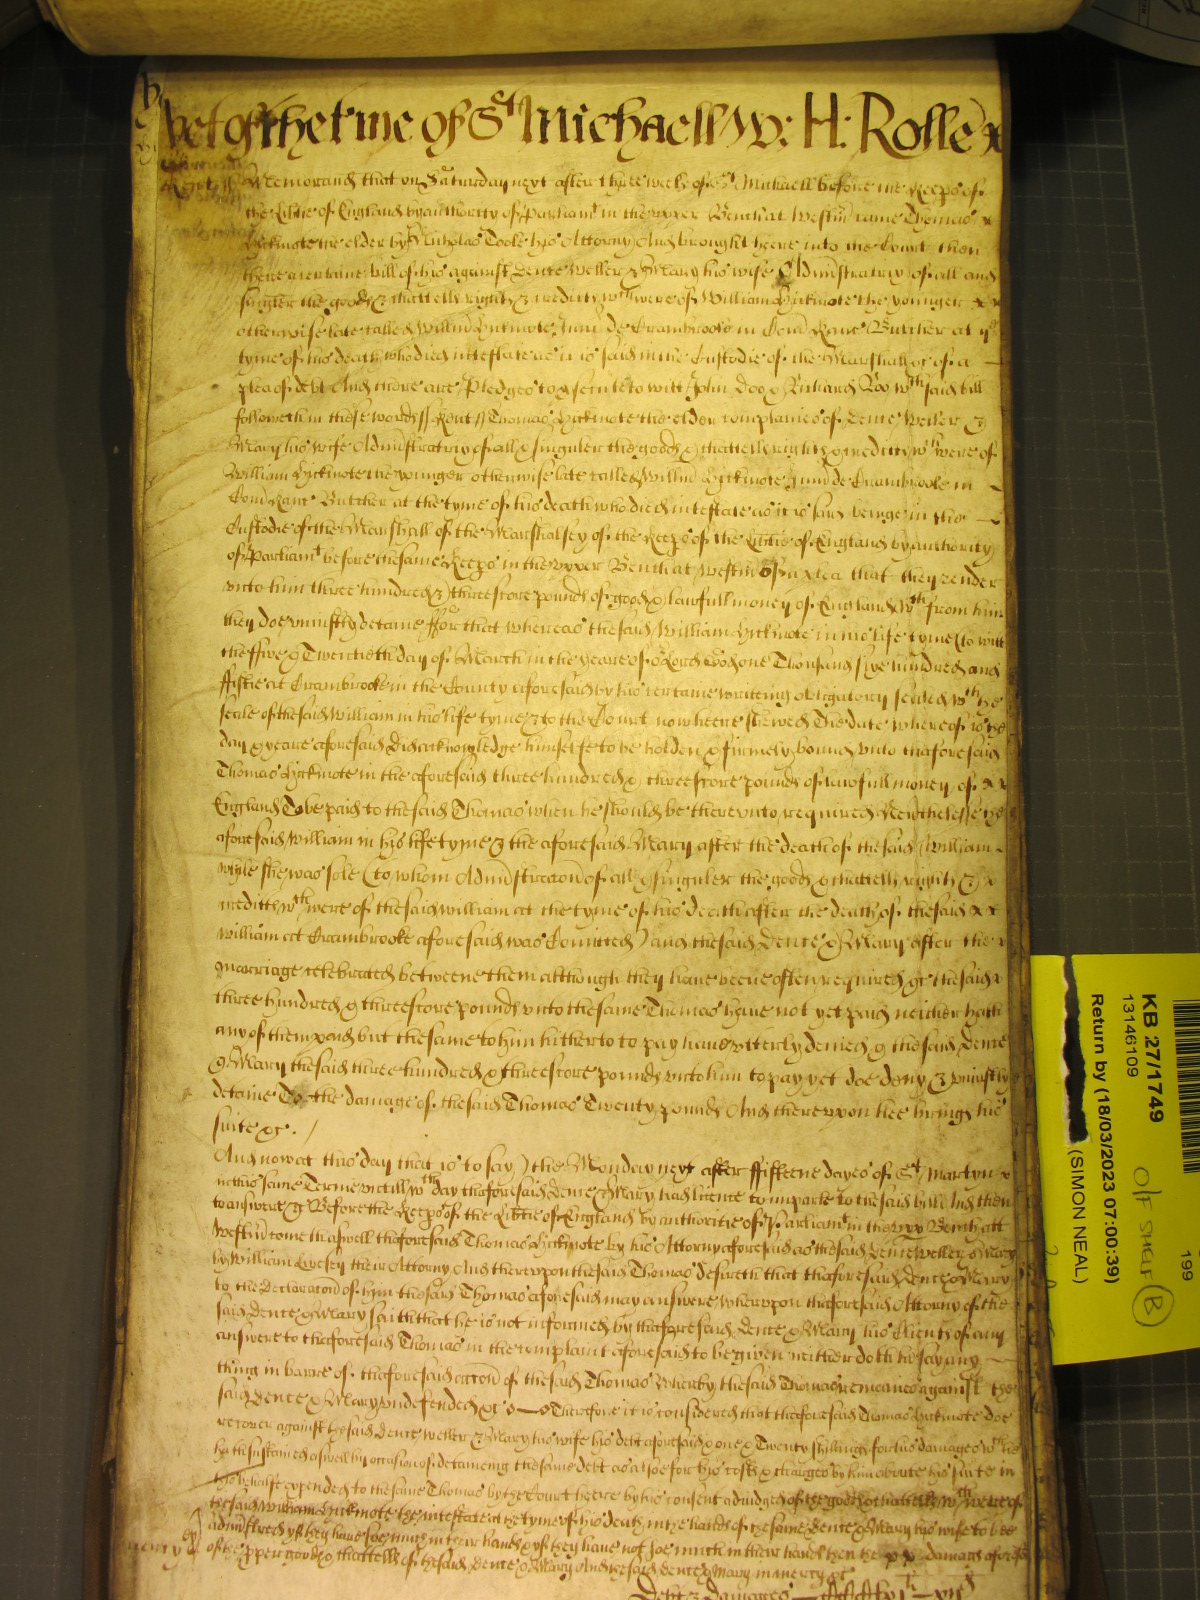 Yet of the t'me of St Michaell W: H: Rolle
Kent // Memorand that on Saturday next after three weeks of St Michaell before the Keeps of
the Libtie of England by authority of Parliamt in the upper Bench at Westm came Thomas
Hickmote the elder by Nicholas Toole his Attorny And brought heere into the Court then
there a certaine bill of his against Dence Weller & Mary his wife Administratrix of all and
singler the goods & chattells rights & creditts wch were of William Hickmote the younger
otherwise late called Willm Hickmote Juni de Crambrooke in Com Kanc Butcher at ye
tyme of his death who died intestate as it is said in the Custodie of the Marshall &c of a
plea of debt And there are Pledges to prosecute to witt John Doo & Richard Roo wch said bill
followeth in these words // Kent // Thomas Hickmote the elder complaines of Dence Weller &
Mary his wife Administratrix of all & singuler the goods & chattells rights & creditts wch were of
William Hickmote the younger otherwise late called Willm Hickmote Juni de Crambrooke in
Com Kanc Butcher at the tyme of his death who died intestate as it is said beinge in the
Custodie of the Marshall of the Marshalsey of the Keeps of the Libtie of England by authority
of Parliamt before the same Keeps in the upper Bench at Westm of a plea that they render
unto him three hundred & threescore pounds of good & lawfull money of England wch from him
they doe uniustly detaine ffor that whereas the said William Hickmote in his life tyme (to witt
the ffive & Twentieth day of March in the yeare of or Lord God one Thousand sixe hundred and
ffiftie at Crambrooke in the County aforesaid by his certaine writing obligatory sealed wth the
seale of the said William in his life tyme & to the Court now heere shewed The date whereof is the
day & yeare aforesaid did acknowledge himselfe to be holden & firmely bound unto thaforesaid
Thomas Hickmote in the aforesaid three hundred & threescore pounds of lawfull money of
England To be paid to the said Thomas when he should be thereunto required Neverthelesse the
aforesaid William in his life tyme & the aforesaid Mary after the death of the said William
while she was sole (to whom Administracon of all & singuler the goods & chattells rights &
creditts wch were of the said William at the tyme of his death after the death of the said
William att Crambrooke aforesaid was Comitted) and the said Dence & Mary after the
marriage celebrated betweene them although they have beene often required &c the said
three hundred & threescore pounds unto the same Thomas have not yet paid neither hath
any of them paid but the same to him hitherto to pay have utterly denied & the said Dence
& Mary the said three hundred & threescore pounds unto him to pay yet doe deny & uniustly
detaine To the damage of the said Thomas Twenty pounds And thereupon hee brings his
suite &c. /
And now at this day that is to say) the Monday next after ffifteene dayes of St Martyn
in this same Terme untill wch day thaforesaid Dence & Mary had licence to imparle to the said bill And then
to answere &c Before the Keeps of the Libtie of England by authoritie of Parliamt in the upp Bench att
Westm come thaswell thaforesaid Thomas Hickmote by his Attorny aforesaid as the said Dence Weller & Mary
by William Livesey their Attorny And thereupon the said Thomas desireth that thaforesaid Dence & Mary
to the Declaracon of him the said Thomas aforesaid may answere whereupon thaforesaid Attorny of the
said Dence & Mary saith that he is not informed by thaforesaid Dence & Mary his Clients of any
answere to thaforesaid Thomas in the complaint aforesaid to be given neither doth he say any
thing in barre of thaforesaid accon of the said Thomas Whereby the said Thomas remaines against the
said Dence & Mary undefended &c Therefore it is considered that thaforesaid Thomas Hickmote doe
recover against the said Dence Weller & Mary his wife his debt aforesaid & one & Twenty shillings for his damages wch he
hath susteined aswell by occasion of detaineing the same debt as alsoe for his costs & charges by him about his suite in
this behalfe expended to the same Thomas by the Court heere by his consent adiudged of the goods & chattells wch were of
the said William Hickmote the intestate at the tyme of his death in the hands of the same Dence & Mary his wife to bee
administred yf they have soe much in their hands & yf they have not soe much in their hands then the damages aforesaid
mercy of the pper goods & chattells of the said Dence & Mary And the said Dence & Mary in mercy &c
Debt & Damages
KB 27/1749
13146109
Return by (18/03/2023 07:00:39)
(SIMON NEAL)
O/F SHELF (B)
199